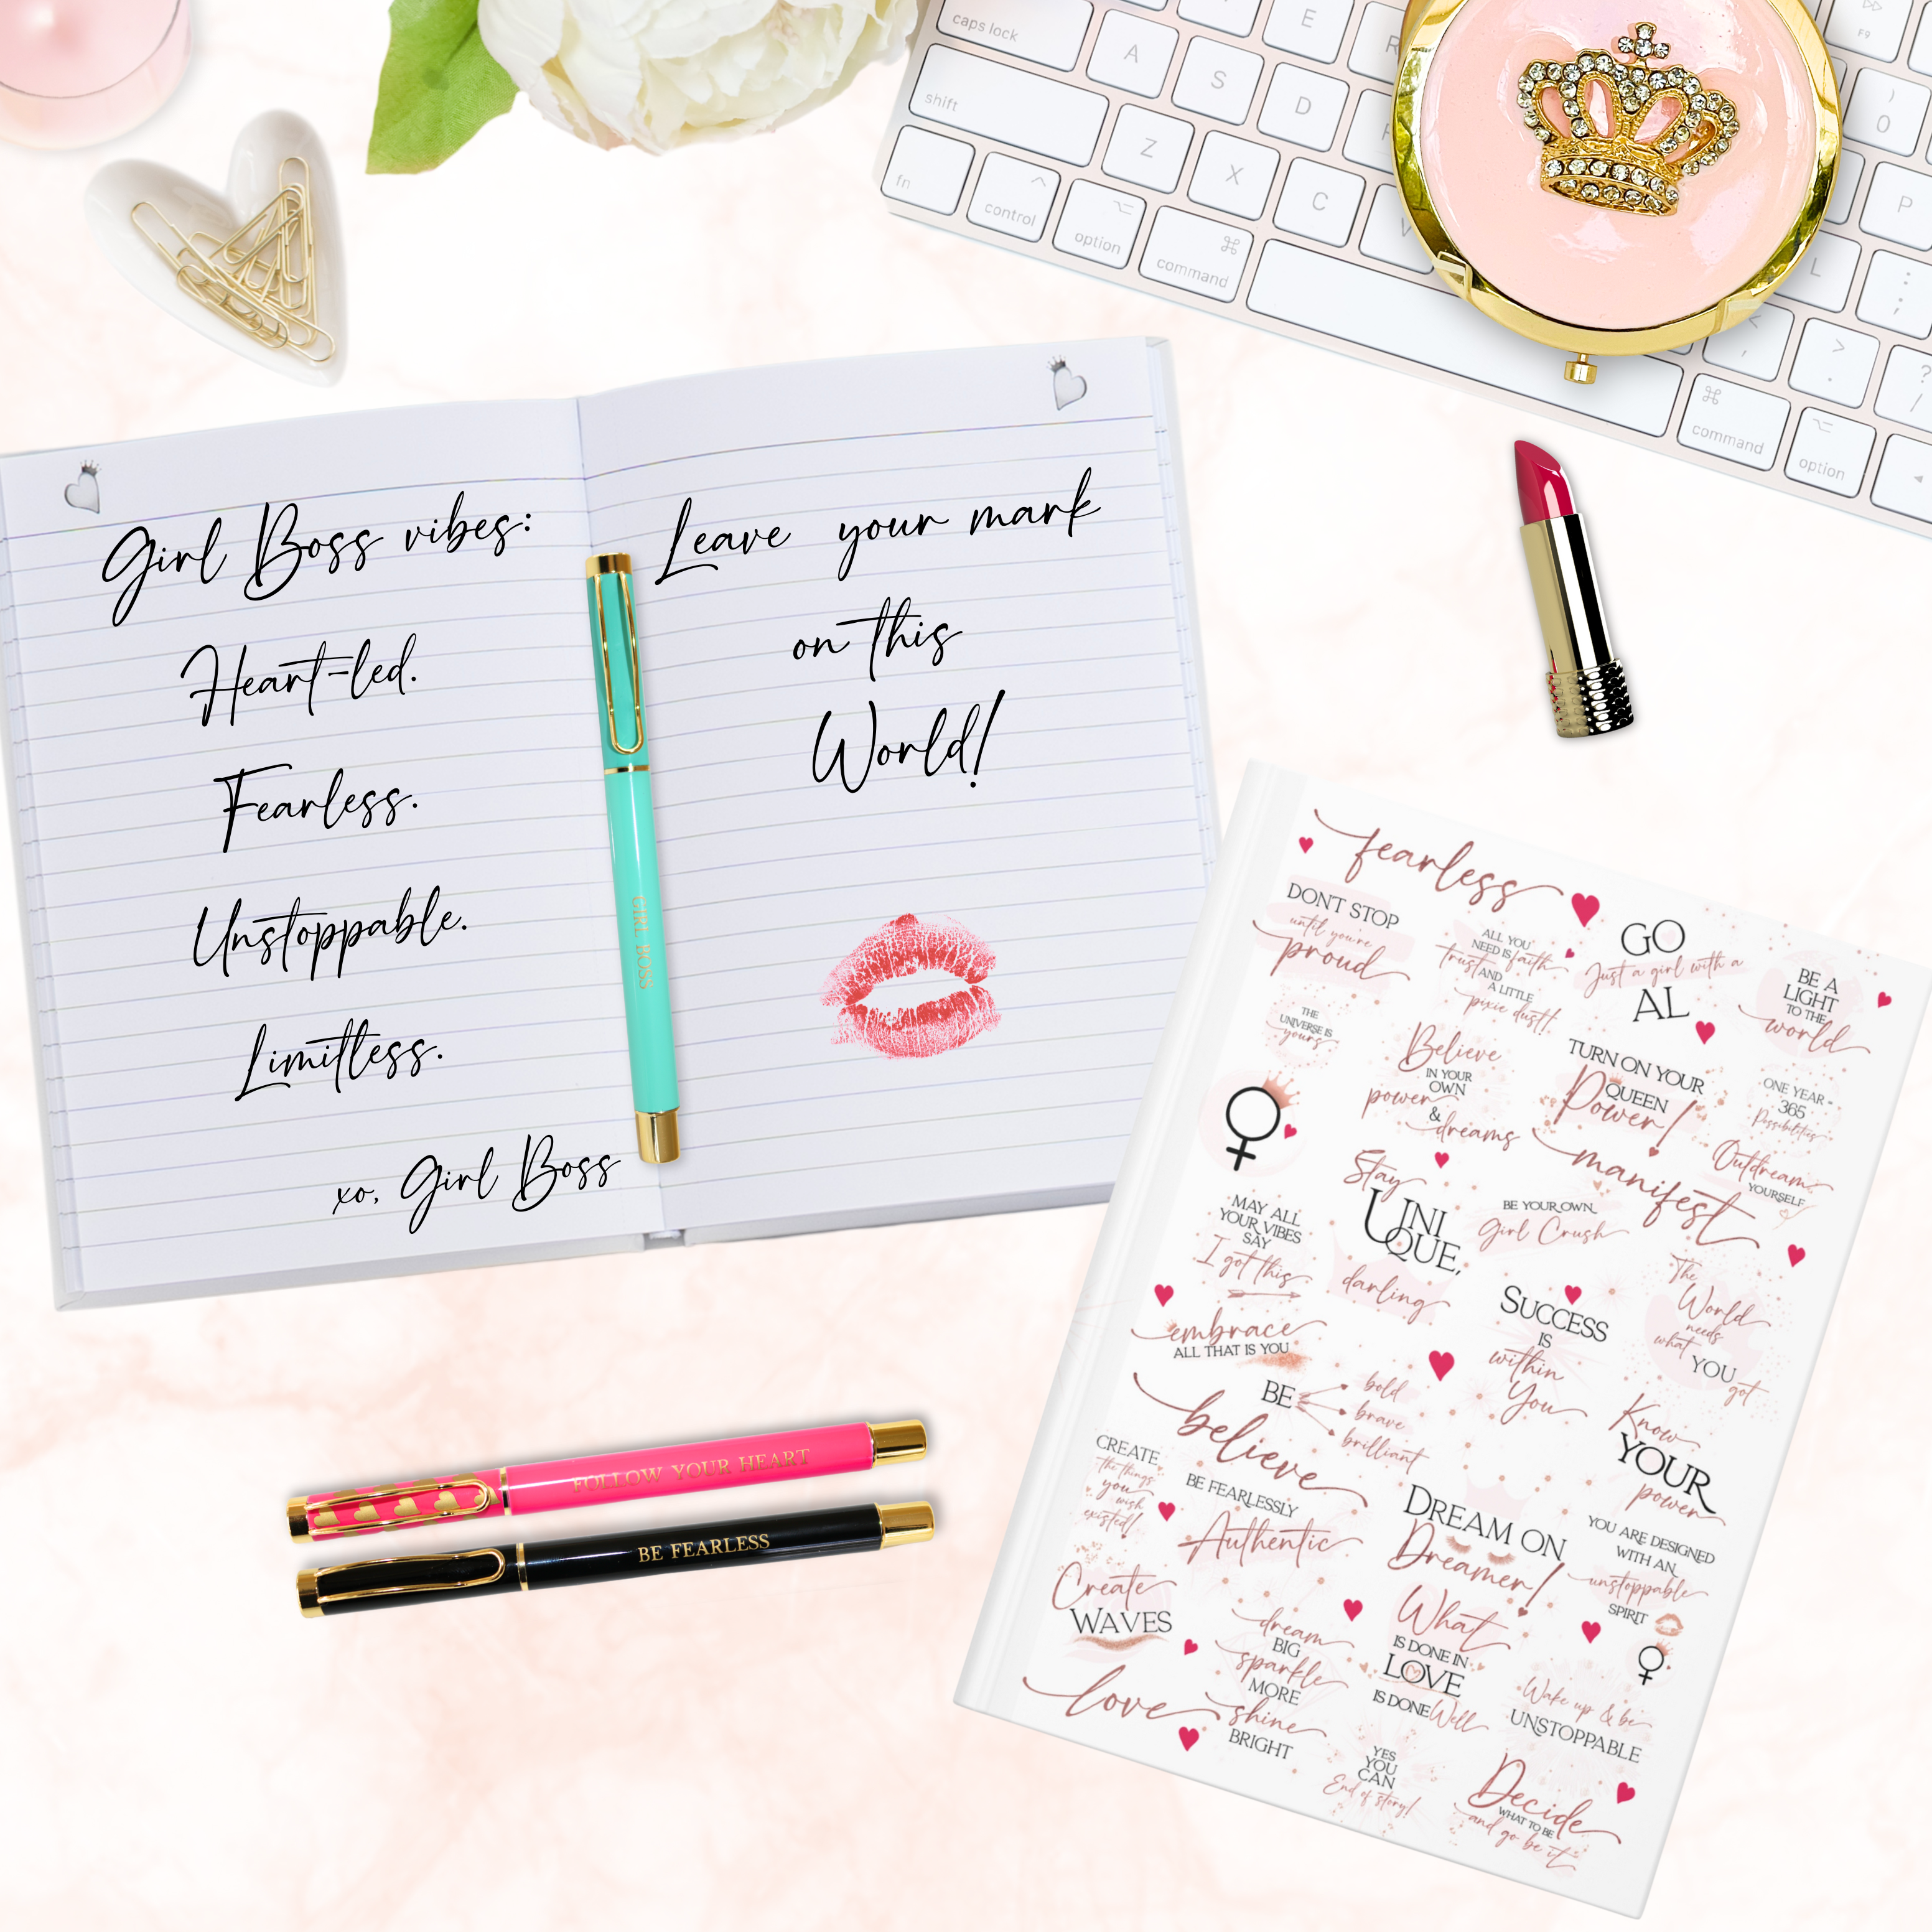 caps lock
A
S
D
E
R
shift
Z
X
C
V
fn
control
option
command
F9
)
0
P
L
:
;
<
,
>
.
?
/
command
option
Girl Boss vibes:
Heart-led.
Fearless.
Unstoppable.
Limitless.
xo, Girl Boss
Leave your mark
on this
World!
GIRL BOSS
FOLLOW YOUR HEART
BE FEARLESS
fearless
DON'T STOP
until you're
proud
ALL YOU
NEED IS faith
trust AND
A LITTLE
pixie dust!
GO
Just a girl with a
AL
BE A
LIGHT
TO THE
world
THE
UNIVERSE IS
yours
Believe
IN YOUR
OWN
power
&
dreams
TURN ON YOUR
QUEEN
Power!
ONE YEAR =
365
Possibilities
manifest
Outdream
YOURSELF
MAY ALL
YOUR VIBES
SAY
I got this
Stay
UNI
QUE,
darling
BE YOUR OWN
Girl Crush
The
World
needs
what
YOU
got
embrace
ALL THAT IS YOU
SUCCESS
IS
within
You
BE
bold
brave
brilliant
believe
Know
YOUR
power
CREATE
the things
you
wish
existed!
BE FEARLESSLY
Authentic
DREAM ON
Dreamer!
YOU ARE DESIGNED
WITH AN
unstoppable
SPIRIT
Create
WAVES
dream
BIG
sparkle
MORE
shine
BRIGHT
What
IS DONE IN
LOVE
IS DONE Well
love
Wake up & be
UNSTOPPABLE
YES
YOU
CAN
End of story!
Decide
WHAT TO BE
and go be it